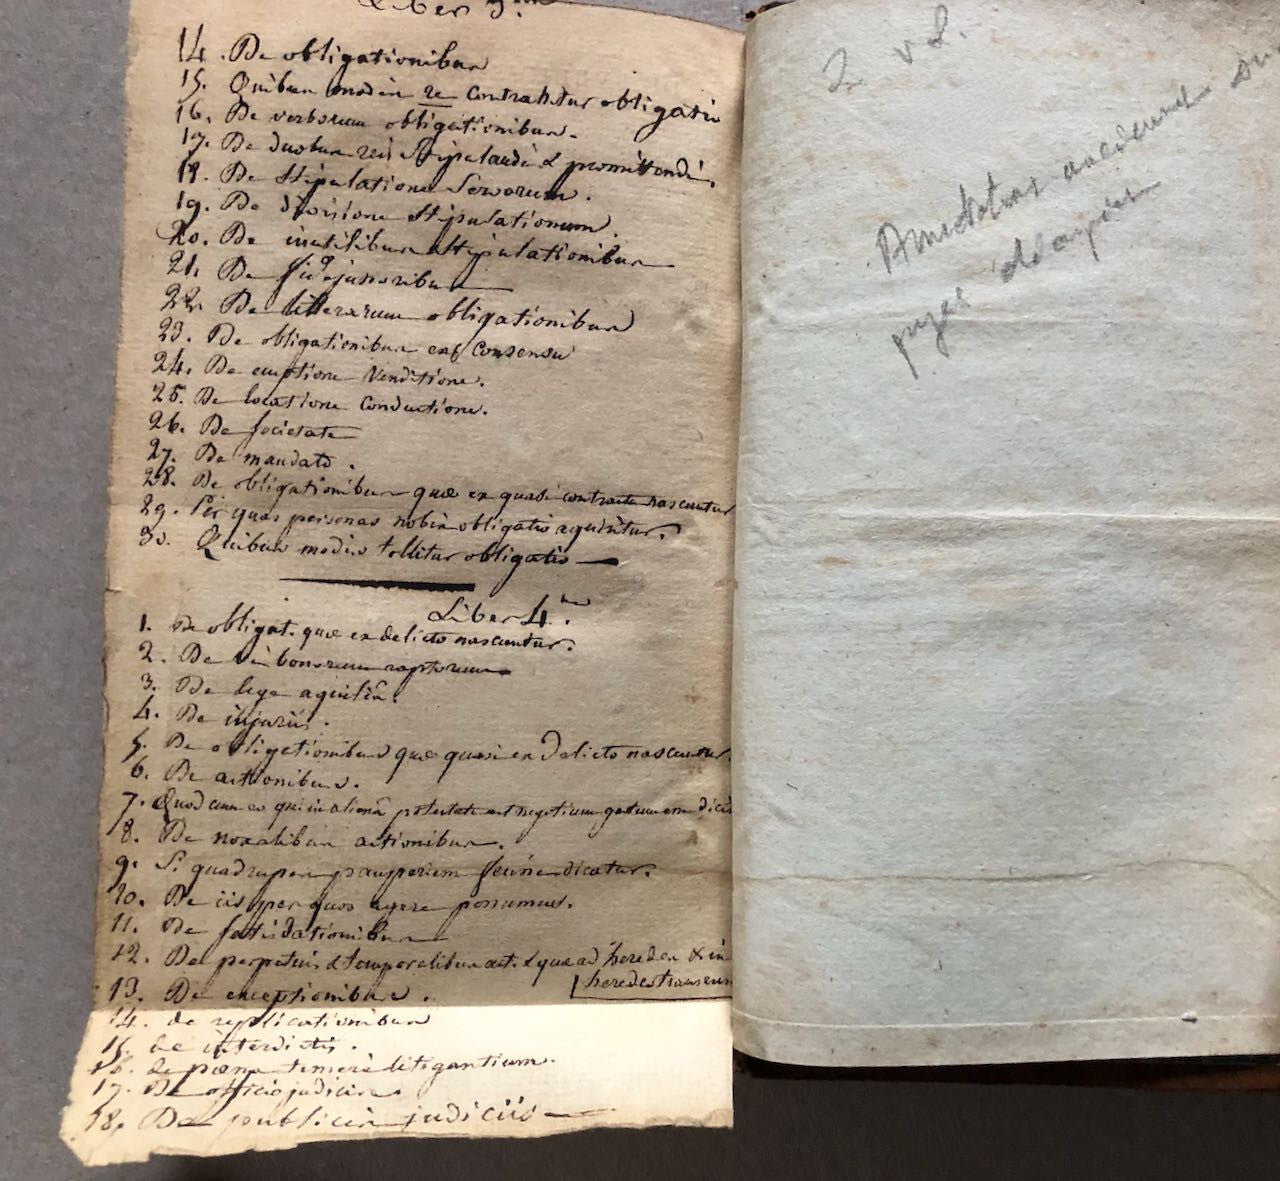 Liber 3.um
14. De obligationibus
15. Quibus modis re contrahitur obligatio
16. De verborum obligationibus.
17. De duobus reis stipulandi & promittendi.
18. De stipulatione servorum.
19. De divisione stipulationum.
20. De inutilibus stipulationibus
21. De fidejussoribus
22. De litterarum obligationibus
23. De obligationibus ex consensu
24. De emptione venditione.
25. De locatione conductione.
26. De societate
27. De mandato.
28. De obligationibus quæ ex quasi contractu nascuntur
29. Per quas personas nobis obligatio aquiritur.
30. Quibus modis tollitur obligatio
Liber 4.us
1. De obligat. quæ ex delicto nascuntur.
2. De vi bonorum raptorum
3. De lege aquiliâ.
4. De injuriis.
5. De obligationibus quæ quasi ex delicto nascuntur.
6. De actionibus.
7. Quod cum eo qui in alienâ potestate est negotium gestum esse dicit
8. De noxalibus actionibus.
9. Si quadrupes pauperiem fecisse dicatur.
10. De iis per quos agere possumus.
11. De satisdationibus
12. De perpetuis & temporalibus act. & quæ ad heredes & in
heredes transeunt
13. De exceptionibus.
14. de replicationibus
15. de interdictis.
16. de pœna temerè litigantium.
17. De officio judicis.
18. De publicis judiciis
2 vol.